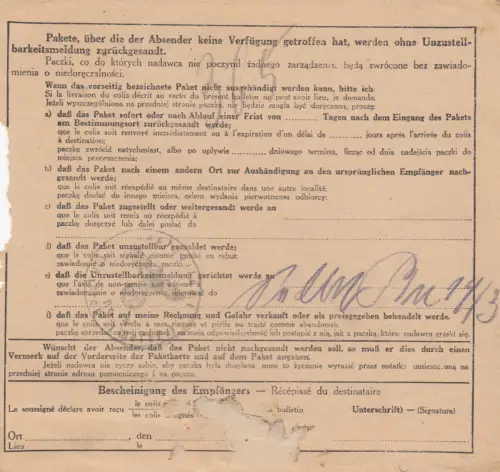 Pakete, über die der Absender keine Verfügung getroffen hat, werden ohne Unzustell-
barkeitsmeldung zurückgesandt.
Paczki, co do których nadawca nie poczynił żadnego zarządzenia, będą zwrócone bez zawiado-
mienia o niedoręczalności.
Wenn das vorseitig bezeichnete Paket nicht ausgehändigt werden kann, bitte ich:
Si la livraison du colis décrit au recto du présent bulletin ne peut avoir lieu, je demande:
Jeżeli wyszczególniona na przedniej stronie paczka nie będzie mogła być doręczona, proszę:
a) daß das Paket sofort oder nach Ablauf einer Frist von .......... Tagen nach dem Eingang des Pakets
am Bestimmungsort zurückgesandt werde;
que le colis soit renvoyé immédiatement ou à l'expiration d'un délai de .......... jours après l'arrivée du colis
à destination;
paczkę zwrócić natychmiast, albo po upływie .......... dniowego terminu, licząc od dnia nadejścia paczki do
miejsca przeznaczenia;
b) daß das Paket nach einem andern Ort zur Aushändigung an den ursprünglichen Empfänger nach-
gesandt werde;
que le colis soit réexpédié au même destinataire dans une autre localité;
paczkę dosłać do innego miejsca, celem wydania pierwotnemu odbiorcy;
c) daß das Paket zugestellt oder weitergesandt werde an
que le colis soit remis ou réexpédié à
paczkę doręczyć lub dalej posłać do
d) daß das Paket unzustellbar gemeldet werde;
que le colis soit signalé comme tombé en rebut;
zawiadomienie o niedoręczalności;
e) daß die Unzustellbarkeitsmeldung gerichtet werde an
que l'avis de non-remise soit
zawiadomienie o niedoręczeniu do
f) daß das Paket auf meine Rechnung und Gefahr verkauft oder als preisgegeben behandelt werde.
que le colis soit vendu à mes risques et périls ou traité comme abandonné;
sprzedano na mą odpowiedzialność lub postąpić z nią, jak z paczką, której nadawca zrzekł się.
Wünscht der Absender, daß das Paket nicht nachgesandt werden soll, so muß er dies durch einen
Vermerk auf der Vorderseite der Paketkarte und auf dem Paket angeben.
Jeżeli nadawca nie życzy sobie, aby paczka była dosyłana, musi to życzenie wyrazić przez notatkę: umieszczoną na
przedniej stronie adresu pomocniczego i na paczce.
Bescheinigung des Empfängers — Récépissé du destinataire
Le soussigné déclare avoir reçu
le colis
les colis
bulletin
Unterschrift) — (Signature)
Ort .........., den
Lieu le